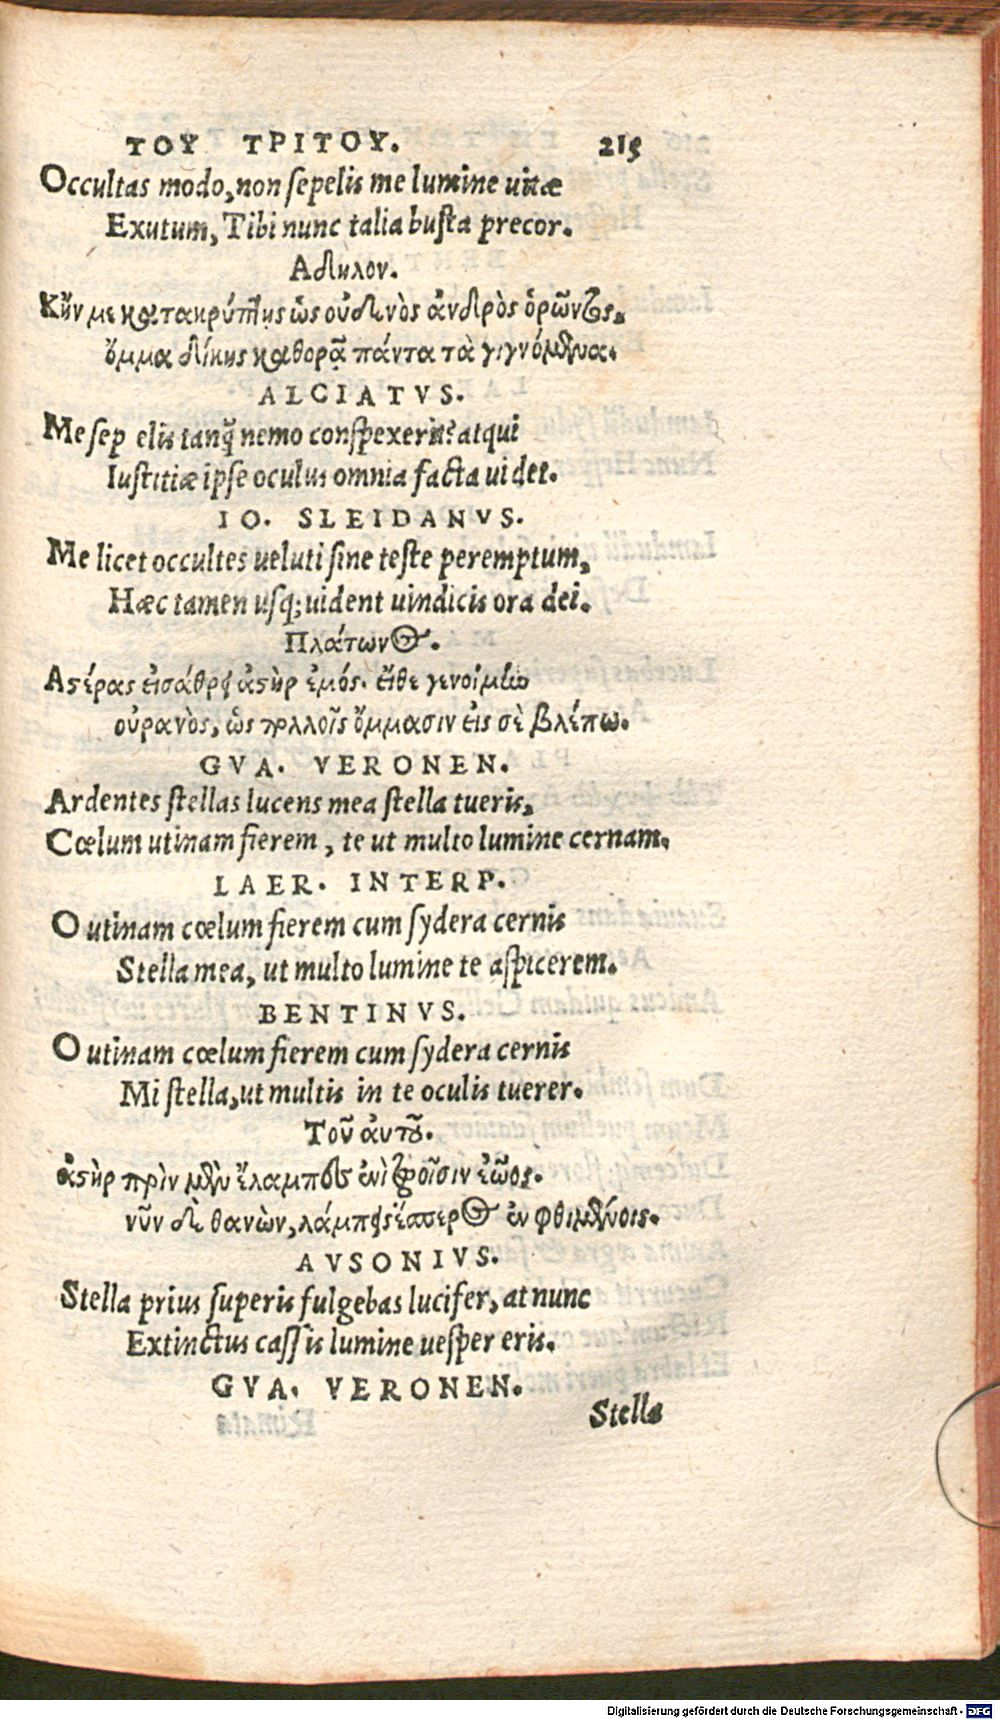 ΤΟΥ ΤΡΙΤΟΥ. 215
Occultas modo, non sepelis me lumine uitæ
Exutum, Tibi nunc talia busta precor.
Αδηλον.
Κἤν με κατακρύπτῃς ὡς οὐδενὸς ἀνδρὸς ὁρῶντος,
ὄμμα δίκης καθορᾷ πάντα τὰ γιγνόμενα.
ALCIATVS.
Me sep elis tanq̃ nemo conspexerit? atqui
Iustitiæ ipse oculus omnia facta uidet.
IO. SLEIDANVS.
Me licet occultes ueluti sine teste peremptum,
Hæc tamen usq; uident uindicis ora dei.
Πλάτωνος.
Αϛέρας εἰσάθρει ἀϛὴρ ἐμός. εἴθε γενοίμην
οὐρανὸς, ὡς πολλοῖς ὄμμασιν εἰς σὲ βλέπω.
GVA. VERONEN.
Ardentes stellas lucens mea stella tueris,
Cœlum utinam fierem, te ut multo lumine cernam.
LAER. INTERP.
O utinam cœlum fierem cum sydera cernis
Stella mea, ut multo lumine te aspicerem.
BENTINVS.
O utinam cœlum fierem cum sydera cernis
Mi stella, ut multis in te oculis tuerer.
Τοῦ ἀυτοῦ.
ἀϛὴρ πρὶν μὲν ἔλαμπες ἐνὶ ζωοῖσιν ἑῶος.
νῦν δὲ θανὼν, λάμπεις ἕσπερος ἐν φθιμένοις.
AVSONIVS.
Stella prius superis fulgebas lucifer, at nunc
Extinctus cassis lumine uesper eris.
GVA. VERONEN.
Stella
Digitalisierung gefördert durch die Deutsche Forschungsgemeinschaft - DFG